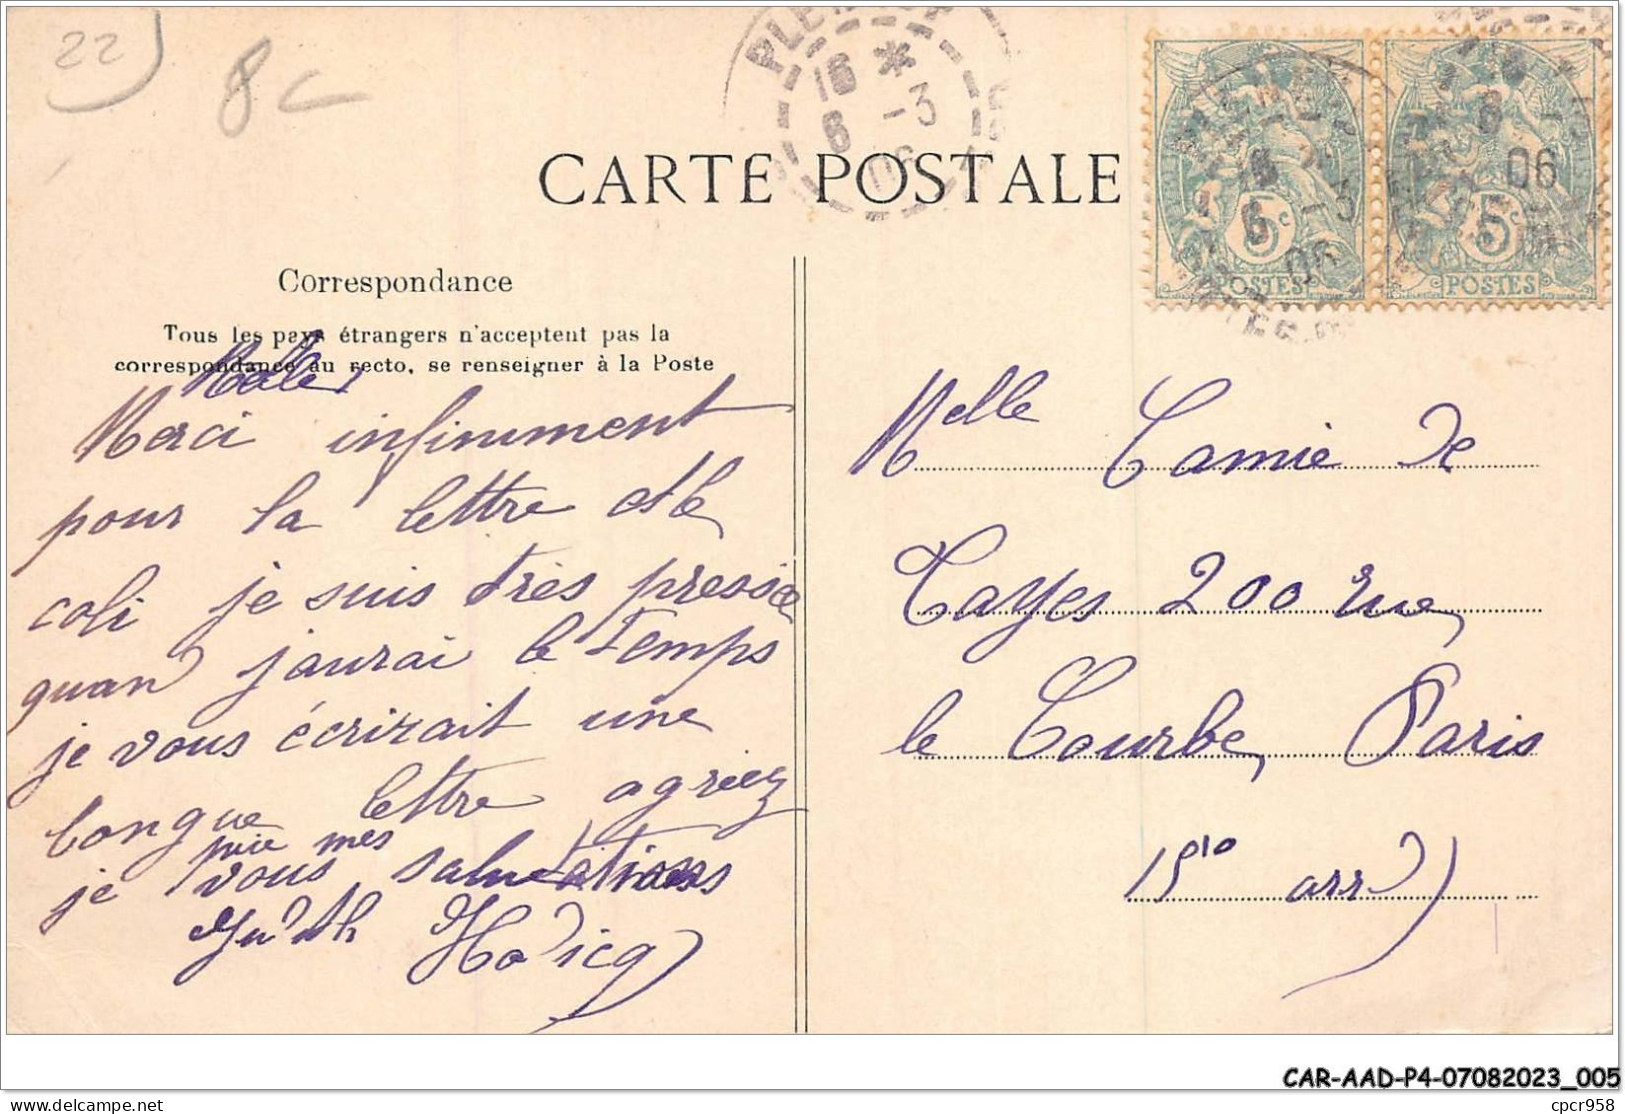 22
8c
PLE
16 *
6 -3
06
CARTE POSTALE
5c
POSTES
6 -3
06
5c
POSTES
6
06
Correspondance
Tous les pays étrangers n'acceptent pas la
correspondance au recto, se renseigner à la Poste
Melle
Merci infiniment
pour la lettre et le
coli je suis très pressée
quand j'aurai le temps
je vous écrirait une
longue lettre agréez
je vous prie mes salutations
Judith
Melle Camie de
Cayes 200 rue
le Courbe, Paris
15me arrd
CAR-AAD-P4-07082023_005
delcampe.net
cpcr958